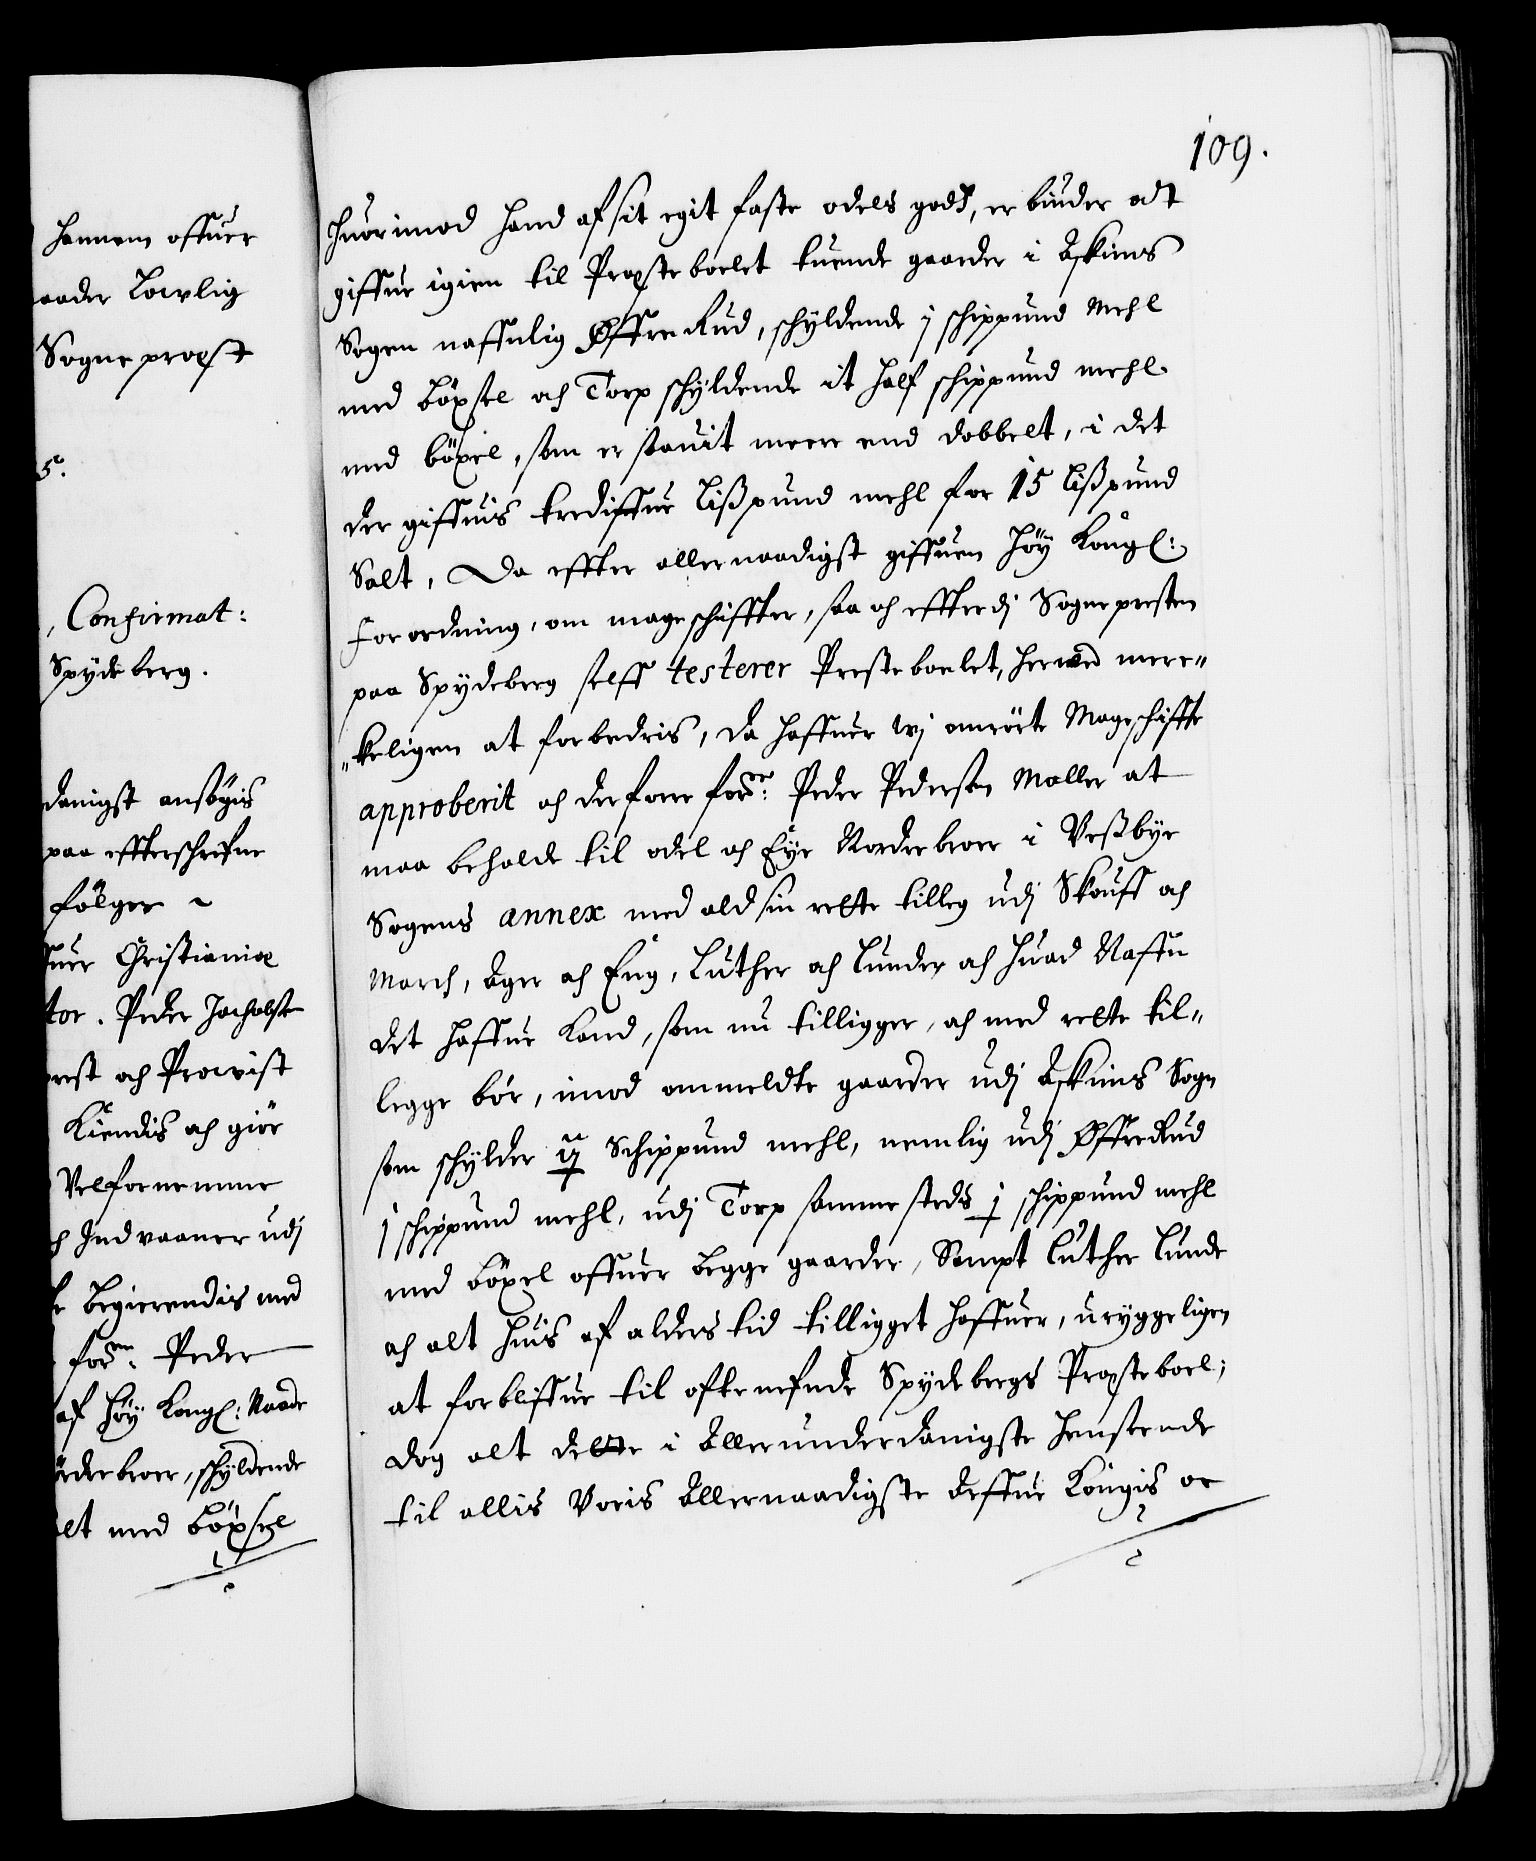 hannem offuer
aader Lovlig
Sogneprest
5.
, Confirmat:
Spydeberg.
danigst ansøgis
paa effterschrefne
følger
uer Christianiæ
tor. Peder Jachobs
rest och Prowist
Kiendis och giør
Velfornemme
Indvaaner udi
Begierendis med
for.ne Peder
af Høy Kongl: Naade
rderbroer, schyldende
lt med böxsel
109.
Huorimod hand af sit egit faste odels gods, erbiuder at
giffue igien til Præsteboelet tuende gaarder i Askims
Sogen naffnlig Øffre Rud, schyldende j schippund Mehl
med böxsel och Torp schyldende it half schippund mehl
med böxel, som er saauit meere end dobbelt, i det
der giffuis trediffue Lißpund mehl for 15 Lißpund
Salt, Da effter allernaadigst giffuen Høy Kongl:
Forordning, om mageschiffter, saa och effterdj Sognepresten
paa Spydeberg selff testerer Presteboelet, herved mere„
„keligen at forbedris, Da haffuer wj omrörte Mageschiffte
approberit och derfore for.ne Peder Pedersen Moller at
maa beholde til odel och Eye Norderbroer i Veßbye
Sogens annex med ald sin rette tilleg udj Skouff och
March, Ager och Eng, Luther och Lunder och huad Naffn
det haffue kand, som nu tilligger, och med rette til„
legge bör, imod ommeldte gaarder udj Askims Sogn
som schylder ij Schippund mehl, nemlig udj Øffre Rud
j schippund mehl, udj Torp sammesteds j schippund mehl
med böxel offuer begge gaarder, Sampt Luther Lunde
och alt huis af alders tid tilligget haffuer, uryggeligen
at forbliffue til oftenefnde Spydebergs Præsteboel;
Dog alt dette i Allerunderdanigste henseende
til allis Voris Allernaadigste Arffue Kongis or